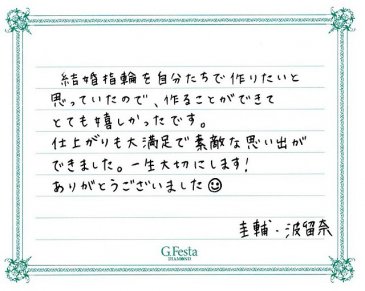 結婚指輪を自分たちで作りたいと
思っていたので、作ることができて
とても嬉しかったです。
仕上がりも大満足で素敵な思い出が
できました。一生大切にします!
ありがとうございました☺
圭輔・波留奈
G.Festa
DIAMOND